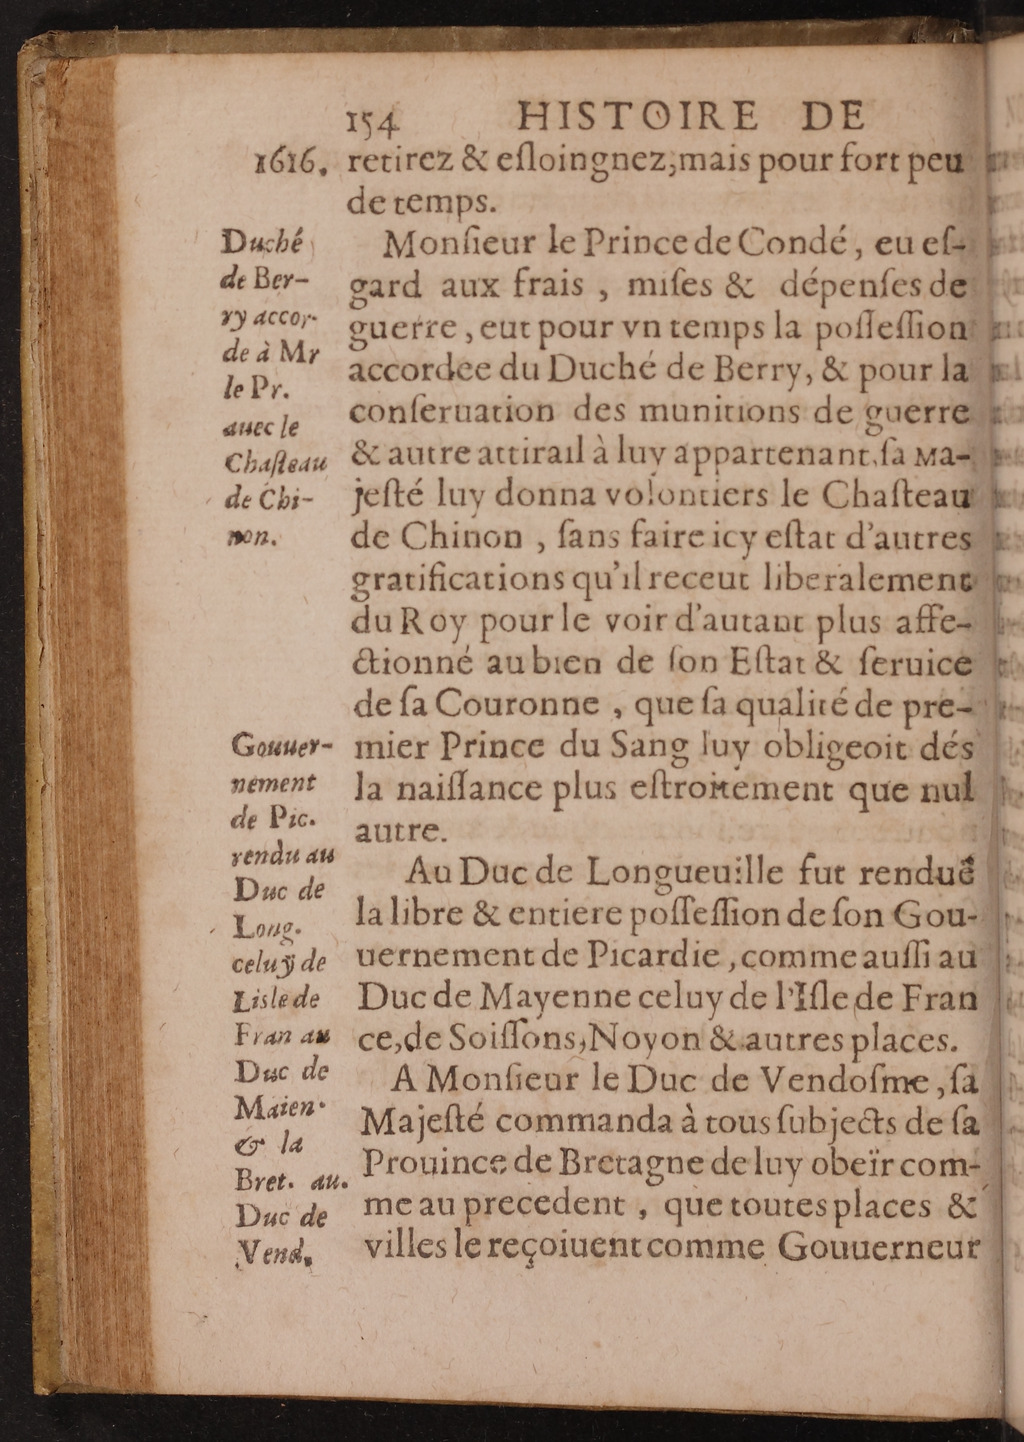 154 HISTOIRE DE
1616. retirez & eſloingnez;mais pour fort peu
de temps.
Monſieur le Prince de Condé, eu eſ-
gard aux frais , miſes & dépenſes de
guerre , eut pour vn temps la poſſeſſion
accordee du Duché de Berry, & pour la
conſeruation des munitions de guerre
& autre attirail à luy appartenant, ſa Ma-
jeſté luy donna volontiers le Chaſteau
de Chinon , ſans faire icy eſtat d'autres
gratifications qu'il receut liberalement
du Roy pour le voir d'autant plus affe-
ctionné au bien de ſon Eſtat & ſeruice
de ſa Couronne , que ſa qualité de pre-
mier Prince du Sang luy obligeoit dés
la naiſſance plus eſtroitement que nul
autre.
Au Duc de Longueuille fut renduë
la libre & entiere poſſeſſion de ſon Gou-
uernement de Picardie , comme auſſi au
Duc de Mayenne celuy de l'Iſle de Fran
ce, de Soiſſons, Noyon & autres places.
A Monſieur le Duc de Vendoſme , ſa
Majeſté commanda à tous ſubjects de ſa
Prouince de Bretagne de luy obeïr com-
me au precedent , que toutes places &
villes le reçoiuent comme Gouuerneur
Duché
de Ber-
ry accor-
de à Mr
le Pr.
auec le
Chaſteau
de Chi-
non.
Gouuer-
nement
de Pic.
rendu au
Duc de
Long.
celuÿ de
Lisle de
Fran au
Duc de
Maien.
& la
Bret. au.
Duc de
Vend.